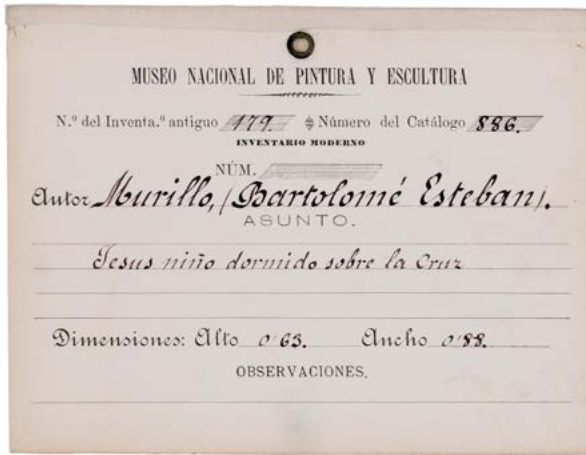 MUSEO NACIONAL DE PINTURA Y ESCULTURA
N.º del Inventa.º antiguo 179. Número del Catálogo 886.
INVENTARIO MODERNO
NÚM.
Autor Murillo, (Bartolomé Esteban).
ASUNTO.
Jesus niño dormido sobre la Cruz
Dimensiones: Alto 0'63. Ancho 0'88.
OBSERVACIONES.